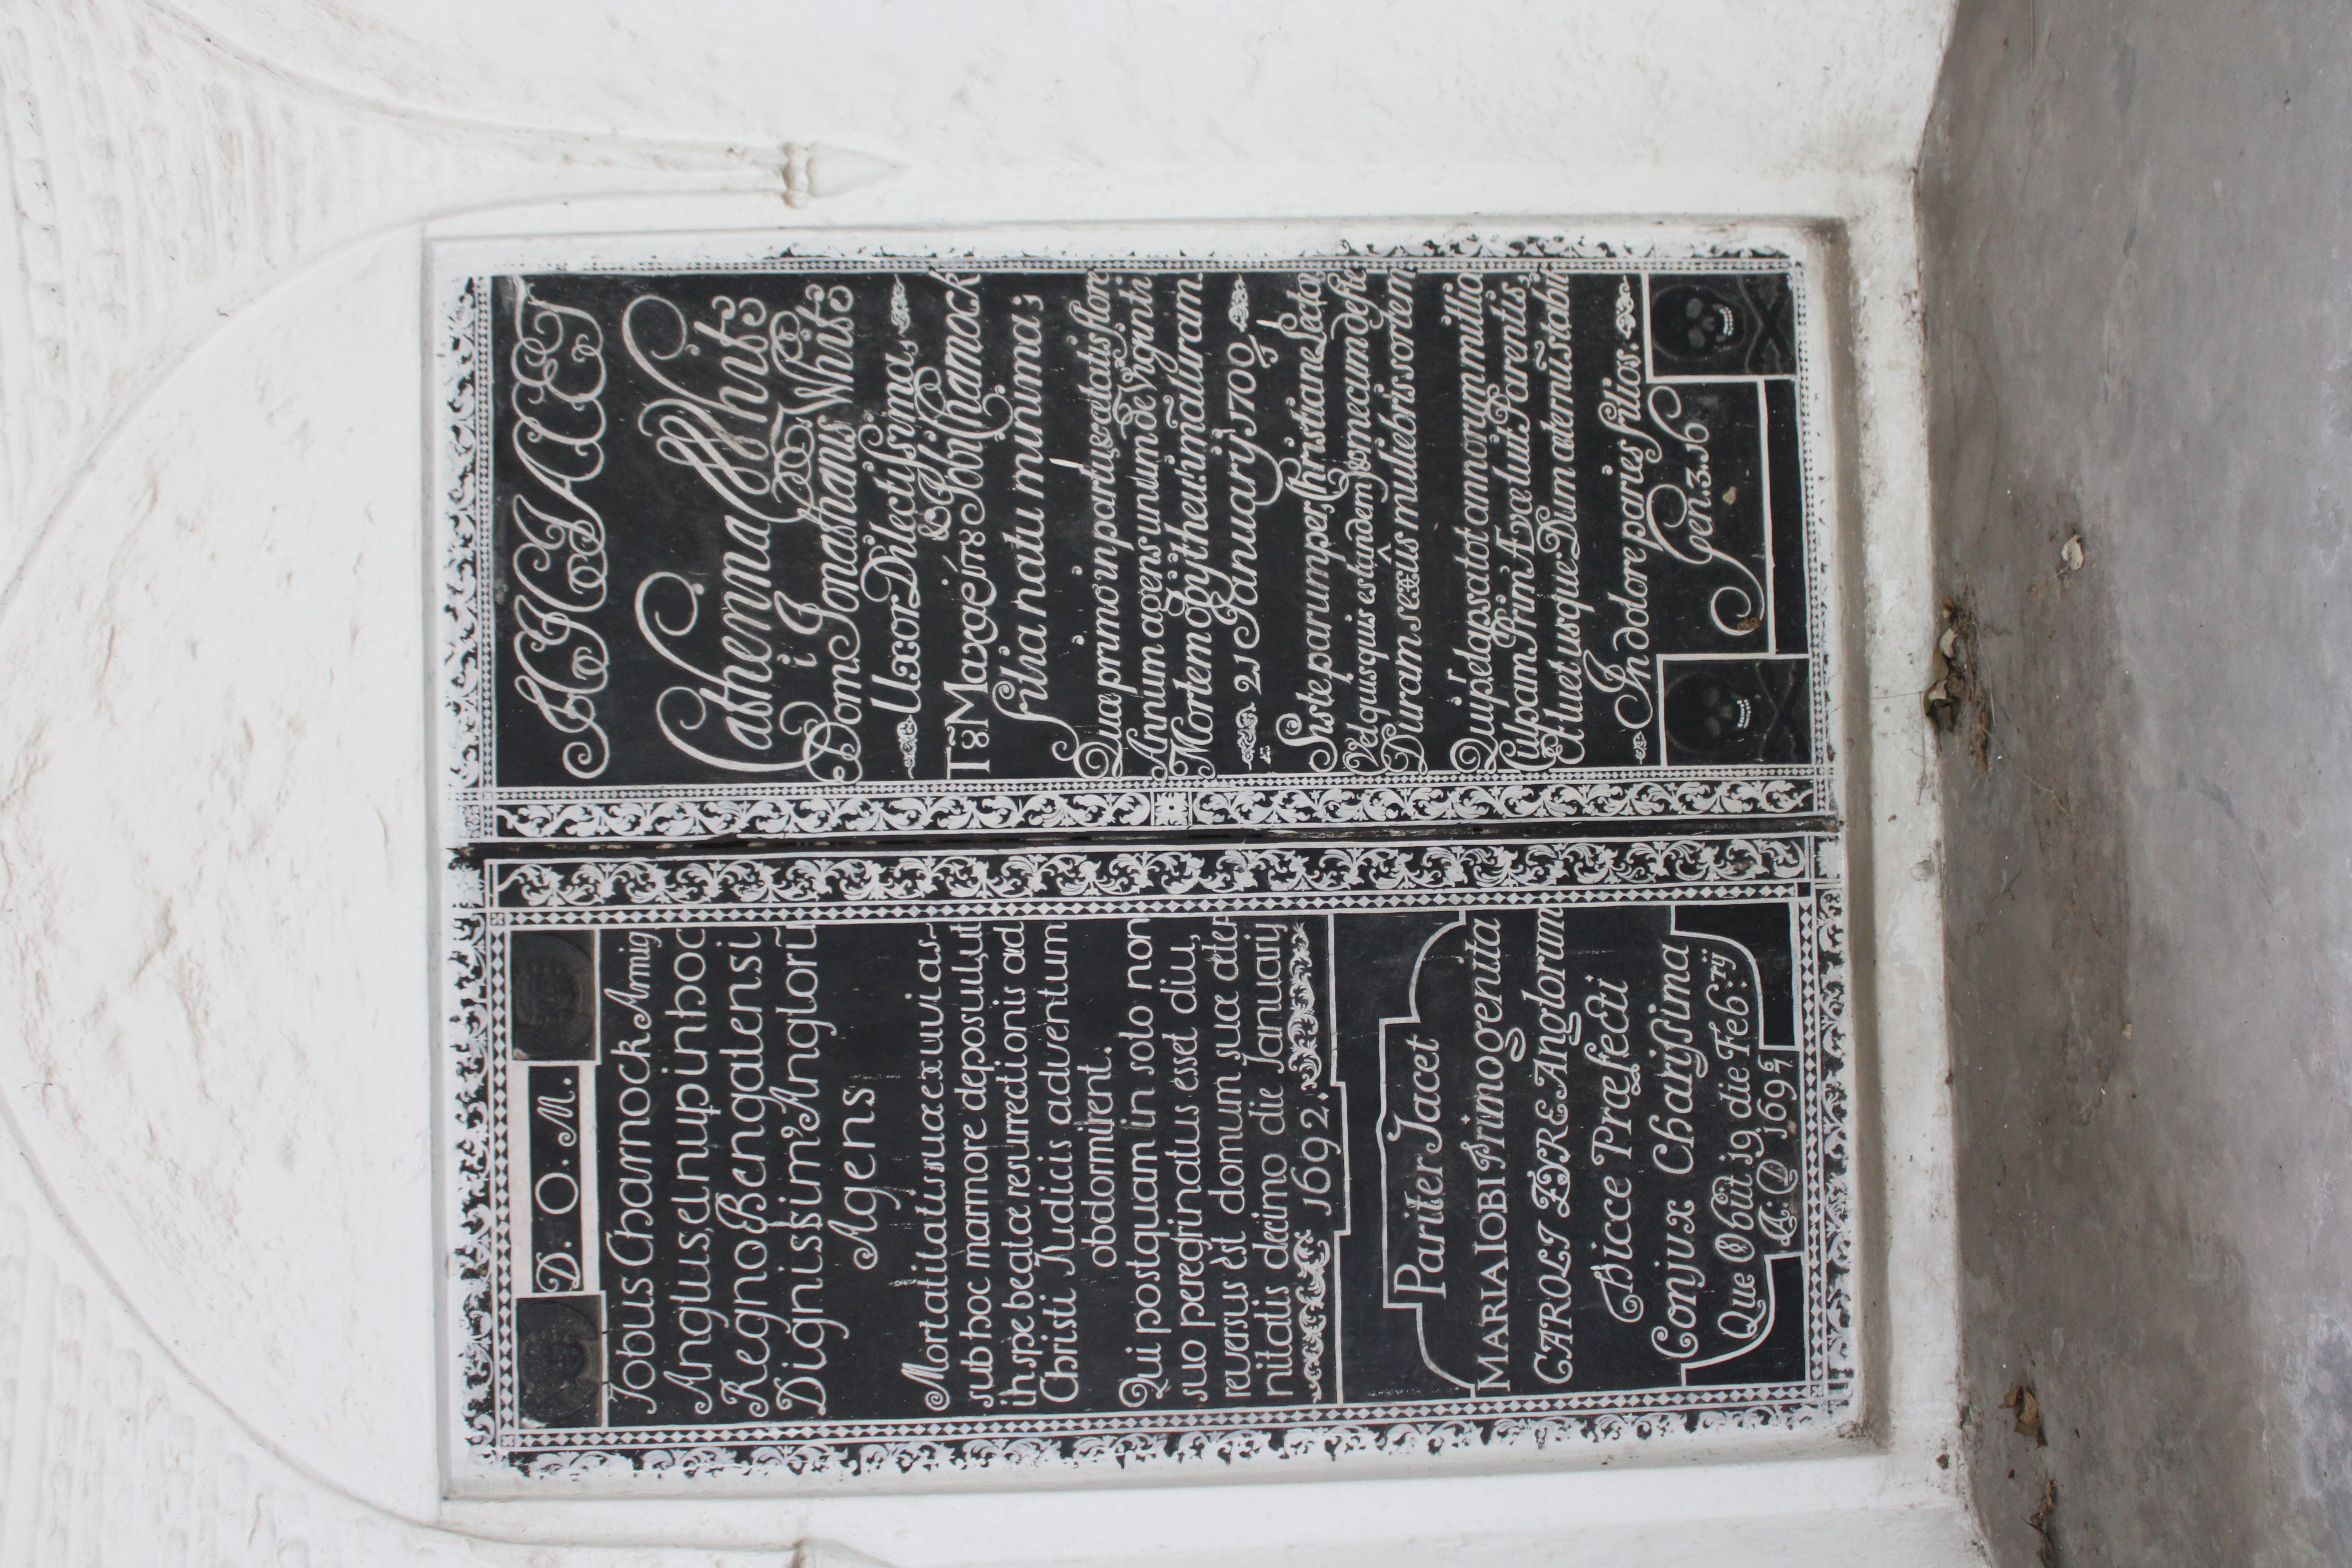 D. O. M.
Jobus Charnock Armig
Anglus, et nup in hoc
Regno Bengalensi
Dignissim' Anglorū
Agens
Mortalitatis suæ exuvias
sub hoc marmore deposuit, ut
in spe beatæ resurrectionis ad
Christi Judicis adventum
obdormirent.
Qui postquam in solo non
suo peregrinatus esset diu,
reversus est domum suæ æter
nitatis decimo die Januarij
1692.
Pariter Jacet
MARIA IOBI Primogenita
CAROLI EYRE Anglorum
Hicce Præfecti
Conjux Charissima
Que Obiit 19 die Feb:rij
A: D 1696/7
HIC JACET
Catherina White
Dom Jonathanis White
Uxor Dilectissima,
& Jobi Charnock
filia natu minima;
Quæ primo in partu, et ætatis flore
Annum agens unum de Viginti
Mortem obijt heu! im̄aturam.
21 Januarij 1700/1
Siste parumper, Christiane Lector
Vel quisquis es tandem) & mecum defle
Duram sexûs muliebris sortem
Qui p elapsa tot annorum millia
Culpam Prim' Ævæ luit Parentis,
Et luet usque; Dum æternū stabit
In dolore paries filios.
Gen. 3. 16.